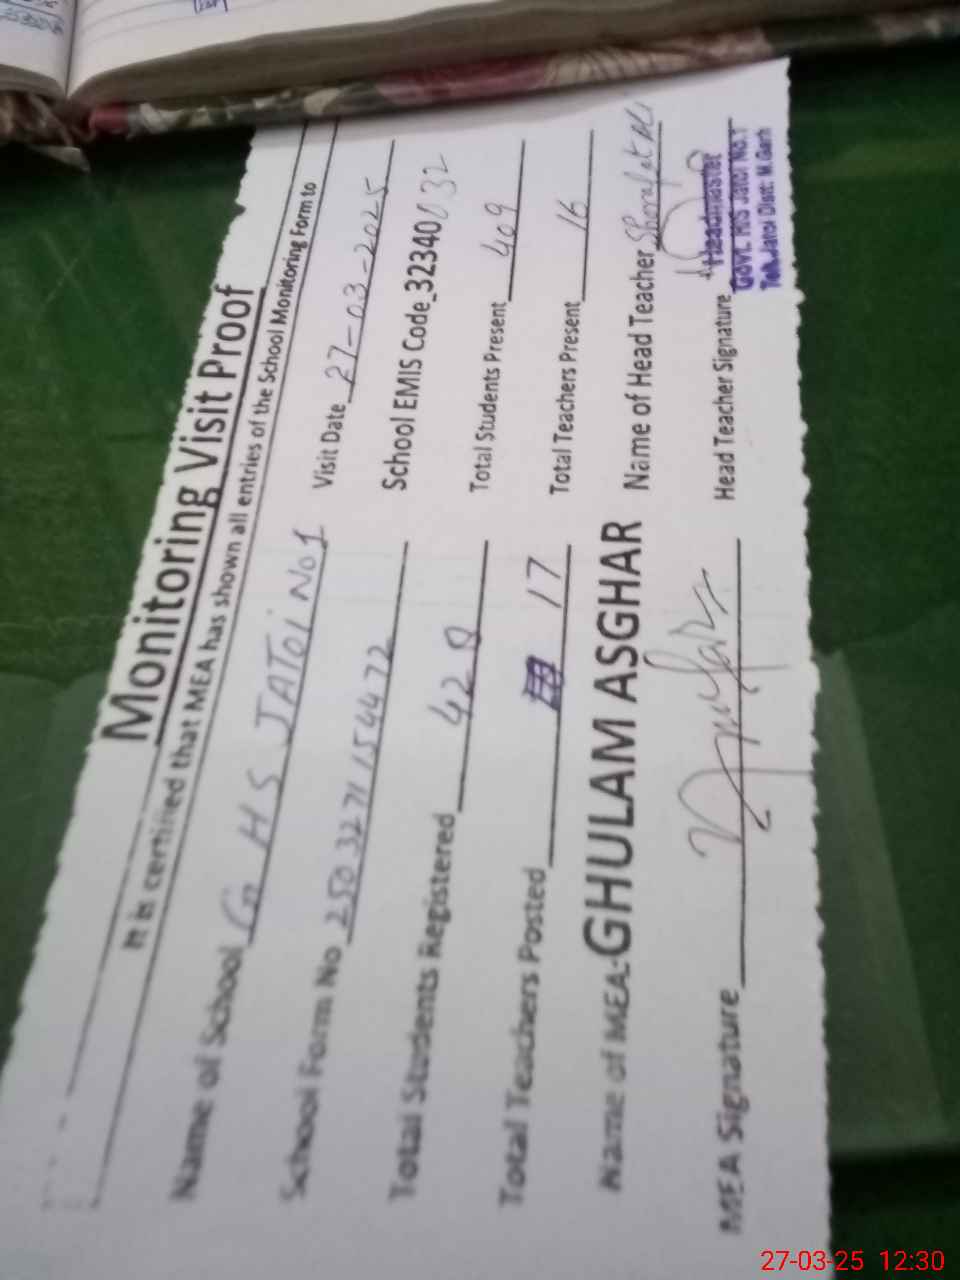 Monitoring Visit Proof
It is certified that MEA has shown all entries of the School Monitoring Form to
Name of School G H S JATOI No 1 Visit Date 27-03-2025
School Form No 2503271154472 School EMIS Code 32340032
Total Students Registered 428 Total Students Present 409
Total Teachers Posted 17 Total Teachers Present 16
Name of MEA:-GHULAM ASGHAR Name of Head Teacher Sharafat Ali
MEA Signature Head Teacher Signature
Headmaster
Govt. H/S Jatoi No.1
Teh. Jatoi Distt: M.Garh
27-03-25 12:30